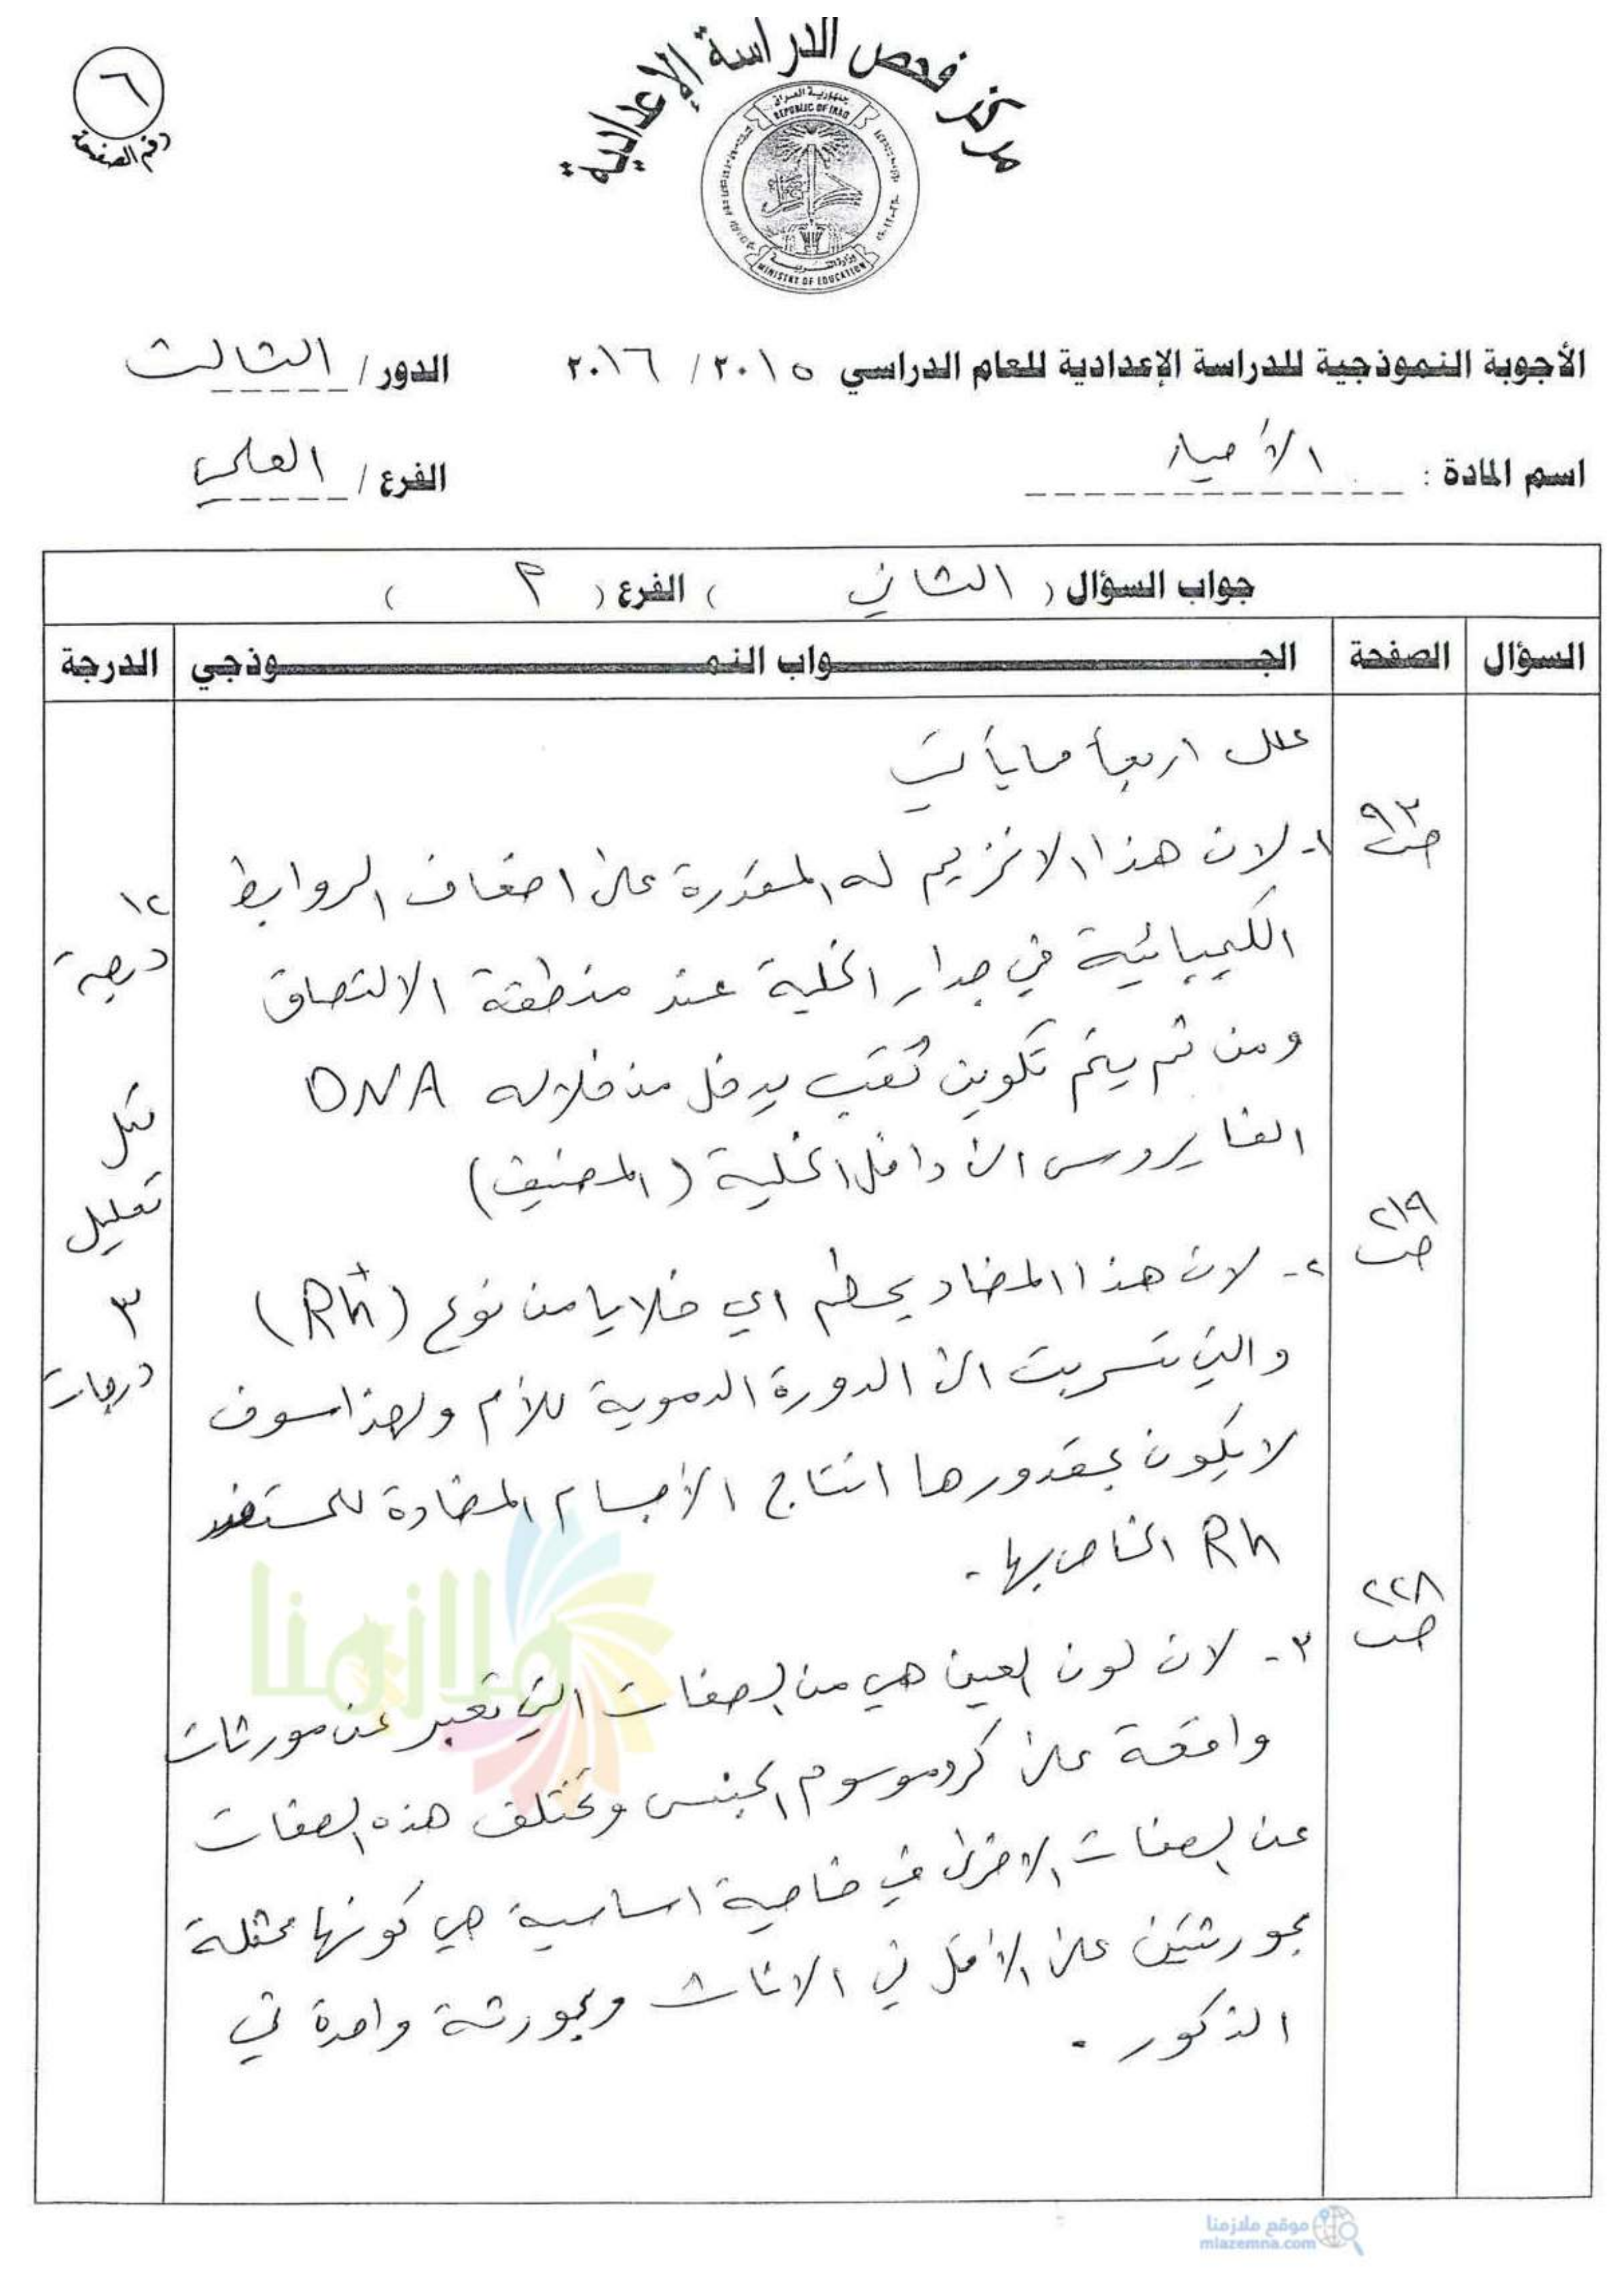 ٦
رقم الصفحة
مركز فحص الدراسة الإعدادية
جمهورية العراق
REPUBLIC OF IRAQ
وزارة التربية
MINISTRY OF EDUCATION
الأجوبة النموذجية للدراسة الإعدادية للعام الدراسي ٢٠١٥ / ٢٠١٦ الدور / الثالث
اسم المادة : الأحياء الفرع / العلمي
جواب السؤال ( الثاني ) الفرع ( ٢ )
السؤال الصفحة الجـــواب النمـــوذجي الدرجة
علل اربعاً مايأتي
ص٩٣ ١- لان هذا الانزيم له المقدرة على اضعاف الروابط ١٢
الكيميائية في جدار الخلية عند منطقة الالتصاق درجة
ومن ثم يتم تكوين ثقب يدخل من خلاله DNA
الفايروس الى داخل الخلية (المضيف) لكل تعليل
ص٢١٩ ٢- لان هذا المضاد يحطم اي خلايا من نوع (Rh+) ٣
والتي تسربت الى الدورة الدموية للأم ولهذا سوف درجات
لا يكون بمقدورها انتاج الأجسام المضادة للمستضد
Rh الخاص بها.
ص٢٢٨ ٣- لان لون العين هي من الصفات التي تعبر عن مورثات
واقعة على كروموسوم الجنس وتختلف هذه الصفات
عن الصفات الاخرى في خاصية اساسية هي كونها ممثلة
بمورثتين على الأقل في الاناث وبمورثة واحدة في
الذكور.
ملازمنا
موقع ملازمنا
mlazemna.com